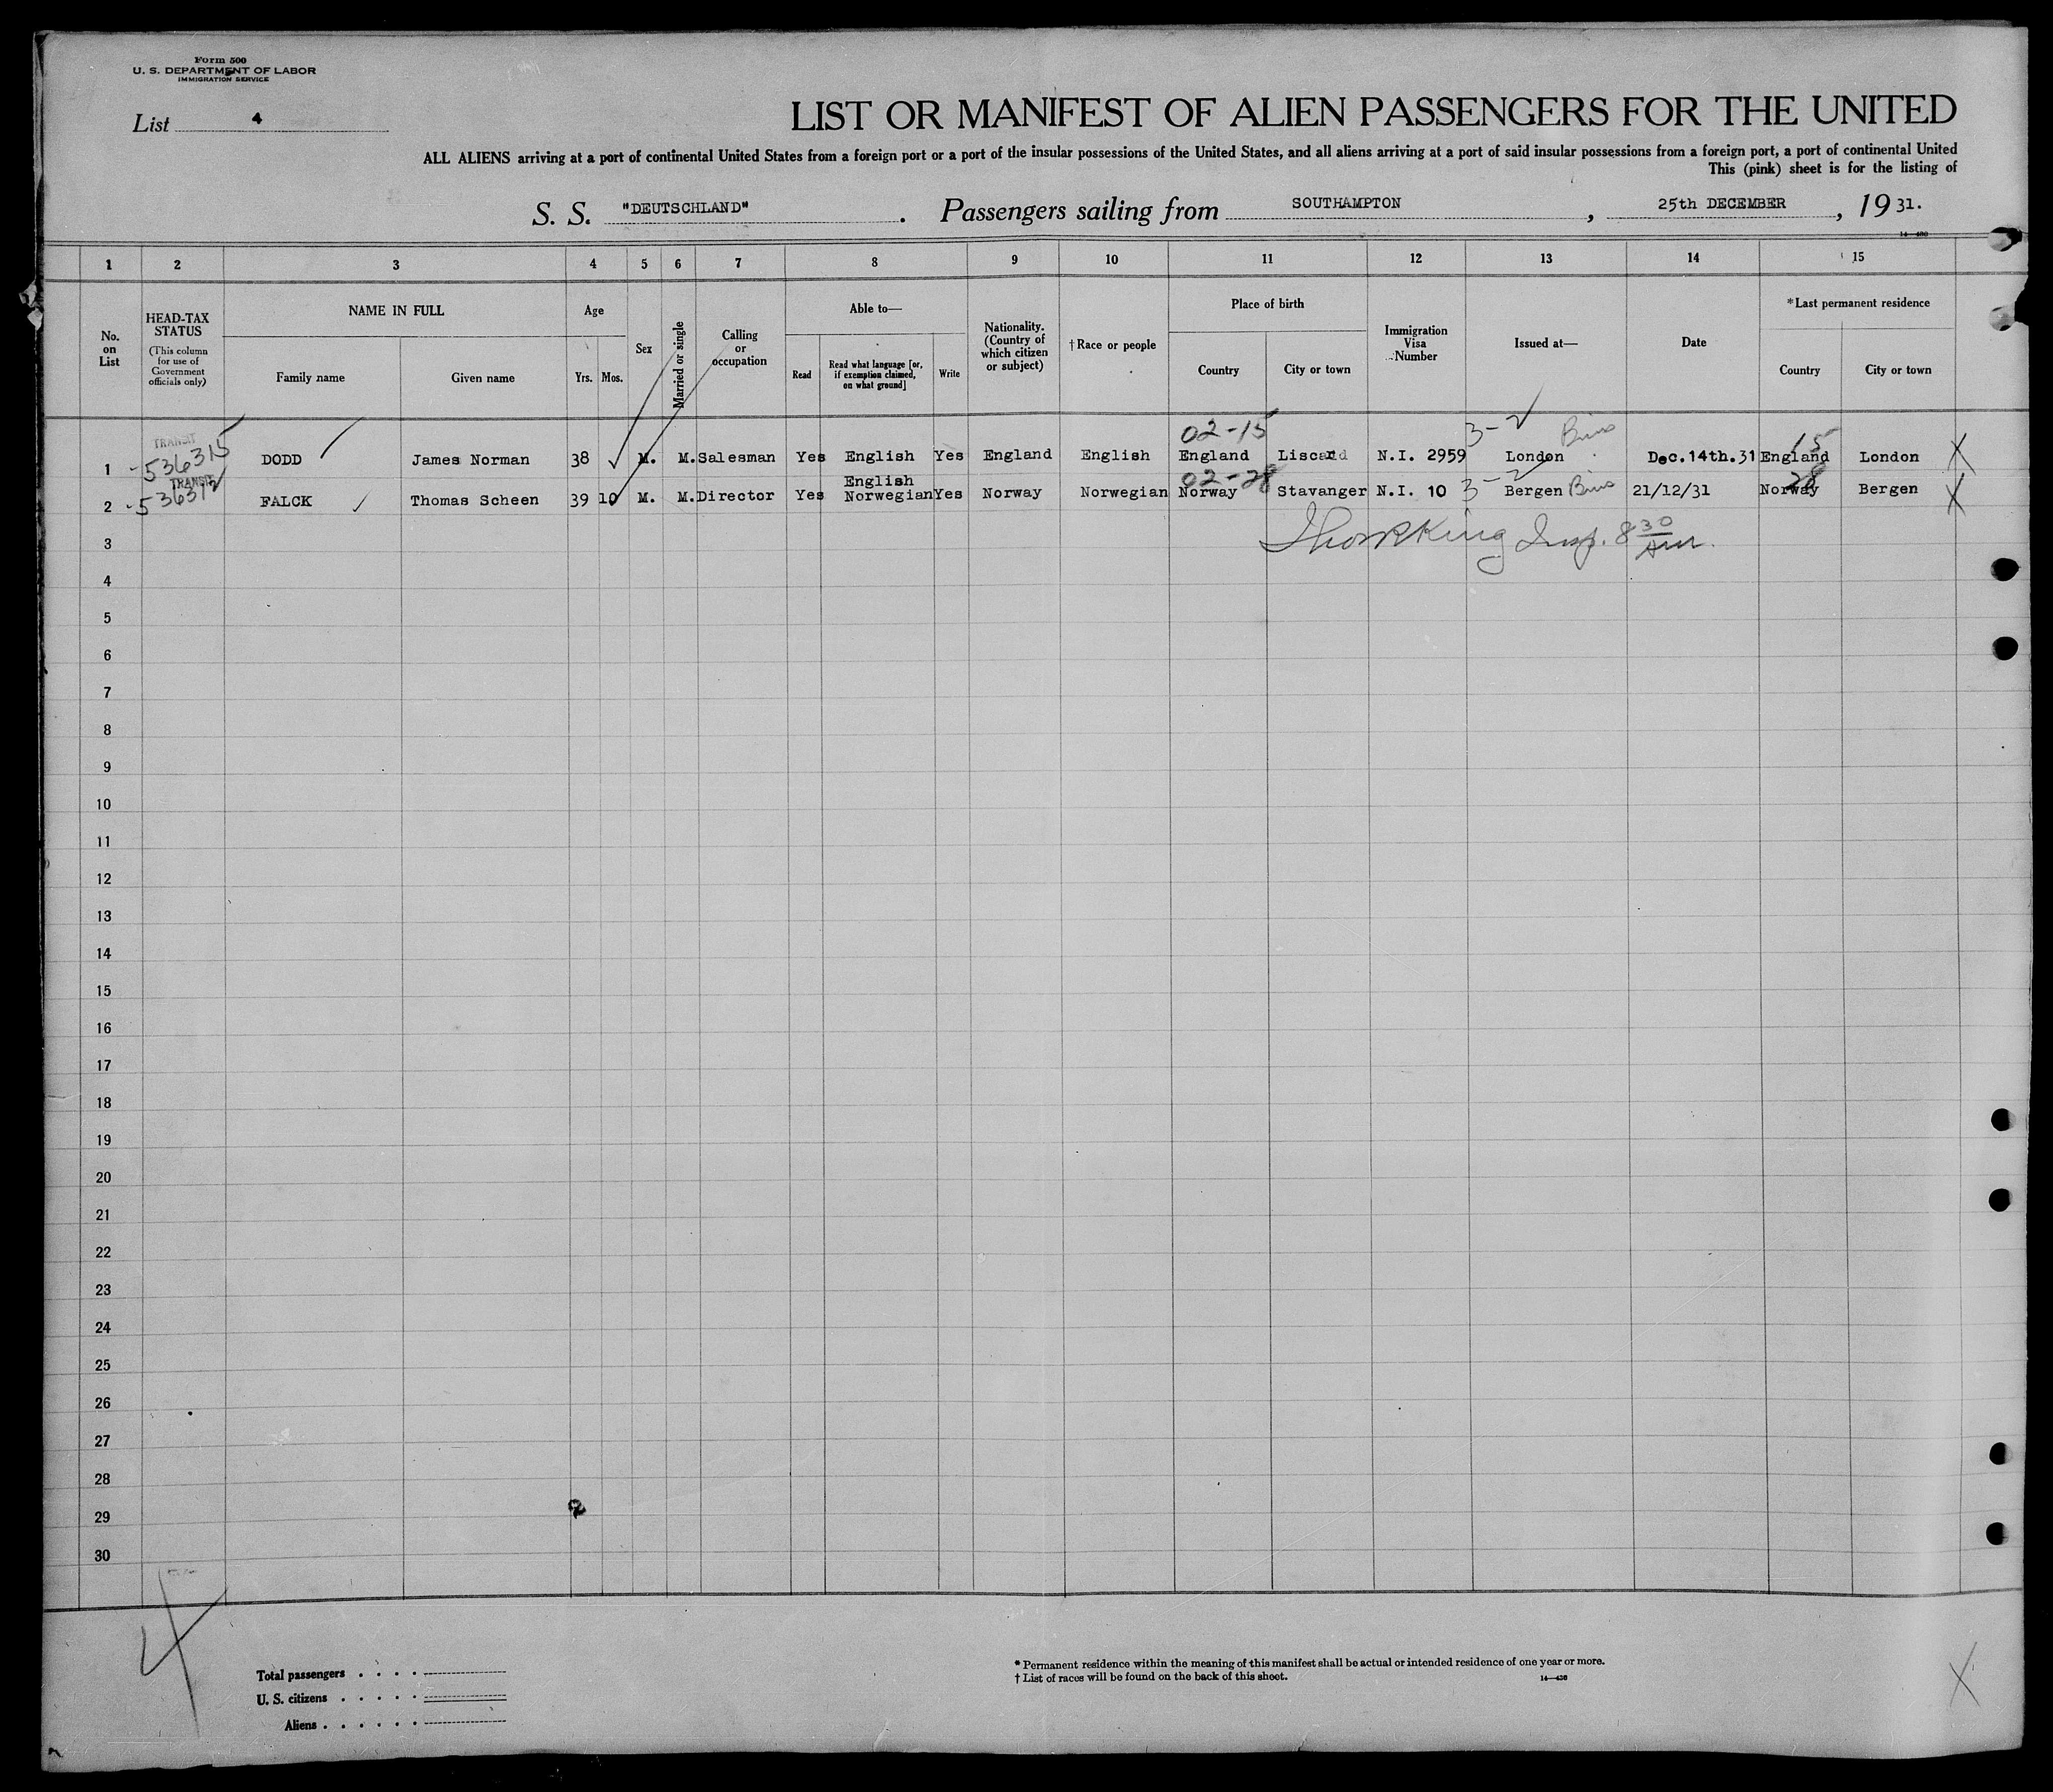 Form 500
U. S. DEPARTMENT OF LABOR
IMMIGRATION SERVICE
List 4
LIST OR MANIFEST OF ALIEN PASSENGERS FOR THE UNITED
ALL ALIENS arriving at a port of continental United States from a foreign port or a port of the insular possessions of the United States, and all aliens arriving at a port of said insular possessions from a foreign port, a port of continental United
This (pink) sheet is for the listing of
S. S. "DEUTSCHLAND" . Passengers sailing from SOUTHAMPTON , 25th DECEMBER , 19 31.
14—430
1 2 3 4 5 6 7 8 9 10 11 12 13 14 15
No. on List
HEAD-TAX STATUS
(This column for use of Government officials only)
NAME IN FULL
Family name
Given name
Age
Yrs.
Mos.
Sex
Married or single
Calling or occupation
Able to—
Read
Read what language [or, if exemption claimed, on what ground]
Write
Nationality. (Country of which citizen or subject)
†Race or people
Place of birth
Country
City or town
Immigration Visa Number
Issued at—
Date
*Last permanent residence
Country
City or town
02-15 3-2 15
TRANSIT
1 -536315 DODD James Norman 38 M. M. Salesman Yes English Yes England English England Liscard N.I. 2959 London Dec.14th.31 England London X
TRANSIT English 02-28 3-2 28
2 -536312 FALCK Thomas Scheen 39 10 M. M. Director Yes Norwegian Yes Norway Norwegian Norway Stavanger N.I. 10 Bergen 21/12/31 Norway Bergen X
3 King Insp. 8 30 Am.
4
5
6
7
8
9
10
11
12
13
14
15
16
17
18
19
20
21
22
23
24
25
26
27
28
29
30
4
Total passengers . . . .
U. S. citizens . . . . .
Aliens . . . . . .
* Permanent residence within the meaning of this manifest shall be actual or intended residence of one year or more.
† List of races will be found on the back of this sheet.
14—430
X